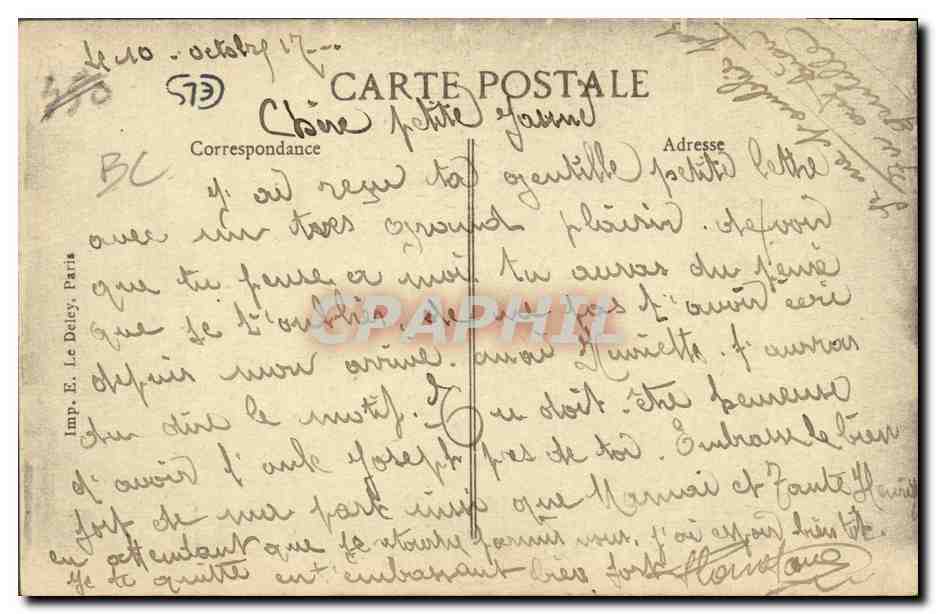 Le 10. octobre 17
573
CARTE POSTALE
Chère petite
Correspondance
Adresse
BC
J'ai reçu ta gentille petite lettre
avec un tres grand plaisir. de voir
que tu pense a moi. tu auras du pensé
que je t'oublier, de ne pas t'avoir écri
depuis mon arrivé. Henriette. j'aurras
du dire le motif. Tu doit. être heureuse
d'avoir l'oncle Joseph pres de toi. Embrasse le bien
fort de ma part insi que Maman et Tante Henriette
en attendant que je retourne parmit vous. j'ai espoir bientôt.
Je te quitte en t'embrassant bien fort
Imp. E. Le Deley, Paris
SCRAPHIL